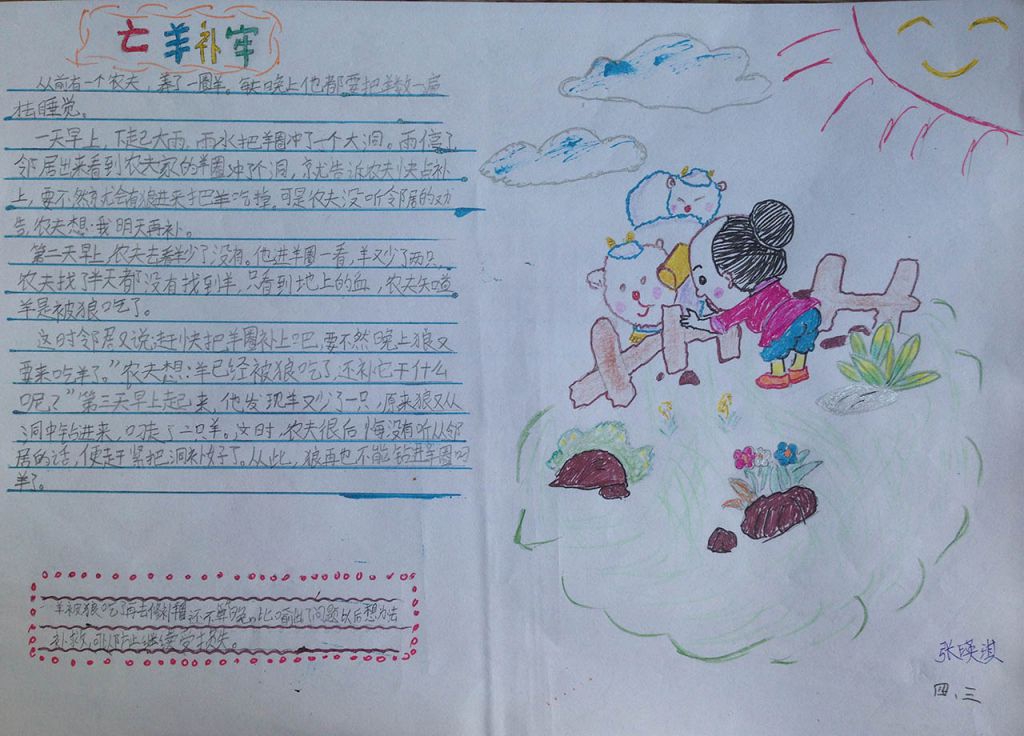 亡羊补牢
从前有一个农夫，养了一圈羊。每天晚上他都要把羊数一遍
去睡觉。
一天早上，下起大雨，雨水把羊圈冲了一个大洞。雨停了
邻居出来看到农夫家的羊圈冲了个洞，就告诉农夫快点补
上，要不然就会有狼进来把羊吃掉，可是农夫没听邻居的劝
告，农夫想：我明天再补。
第二天早上，农夫去看羊少了没有。他进羊圈一看，羊又少了两只，
农夫找了半天都没有找到羊，只看到地上的血，农夫知道
羊是被狼吃了。
这时邻居又说：赶快把羊圈补上吧，要不然晚上狼又
要来吃羊了。”农夫想：羊已经被狼吃了，还补它干什么
呢？”第三天早上起来，他发现羊又少了一只，原来狼又从
洞中钻进来，叼走了一只羊。这时，农夫很后悔没有听从邻
居的话，便赶紧把洞补好了。从此，狼再也不能钻进羊圈叼
羊了。
羊被狼吃了再去修补还不算晚。比喻出了问题以后想办法
补救，可以防止继续受损失。
张瑛淇
四、三